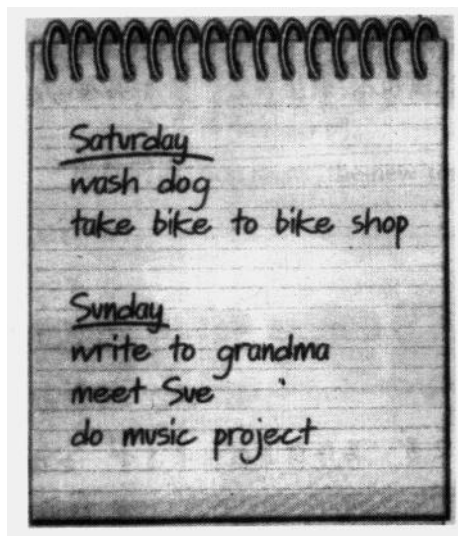 Saturday
wash dog
take bike to bike shop
Sunday
write to grandma
meet Sue
do music project